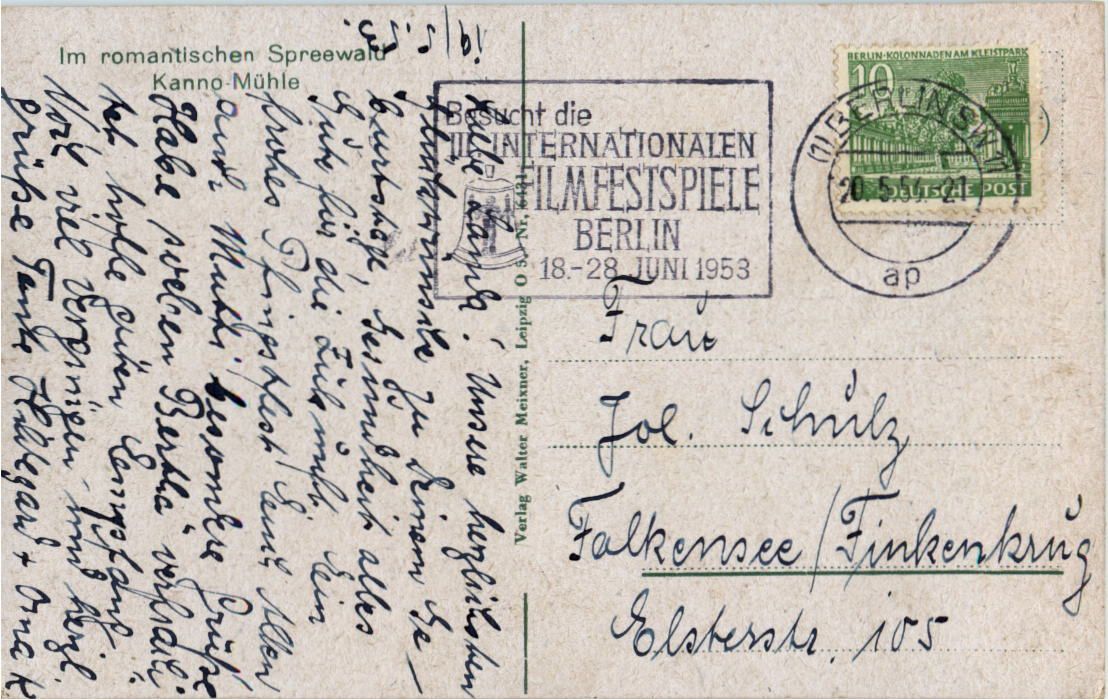 Im romantischen Spreewald
Kanno-Mühle
19/5.53
Liebe Wanda! Unsere herzlichsten
Glückwünsche zu Deinem Ge-
burtstage, Gesundheit alles
Gute für die Zukunft. Ein
frohes Pfingstfest! Euch Allen
und Mutti besondere Grüße
Habe soeben Bertha
ich hoffe guten Empfang.
Noch viel Vergnügen und herzl.
Grüße Tante Hildegard + Oma K
Verlag Walter Meixner, Leipzig O 5, Nr.
Besucht die
III. INTERNATIONALEN
FILMFESTSPIELE
BERLIN
18.-28. JUNI 1953
BERLIN-KOLONNADEN AM KLEISTPARK
10
DEUTSCHE POST
(1) BERLIN SW 11
20.5.53.-21
ap
Frau
Joh. Schulz
Falkensee/Finkenkrug
Elsterstr. 105